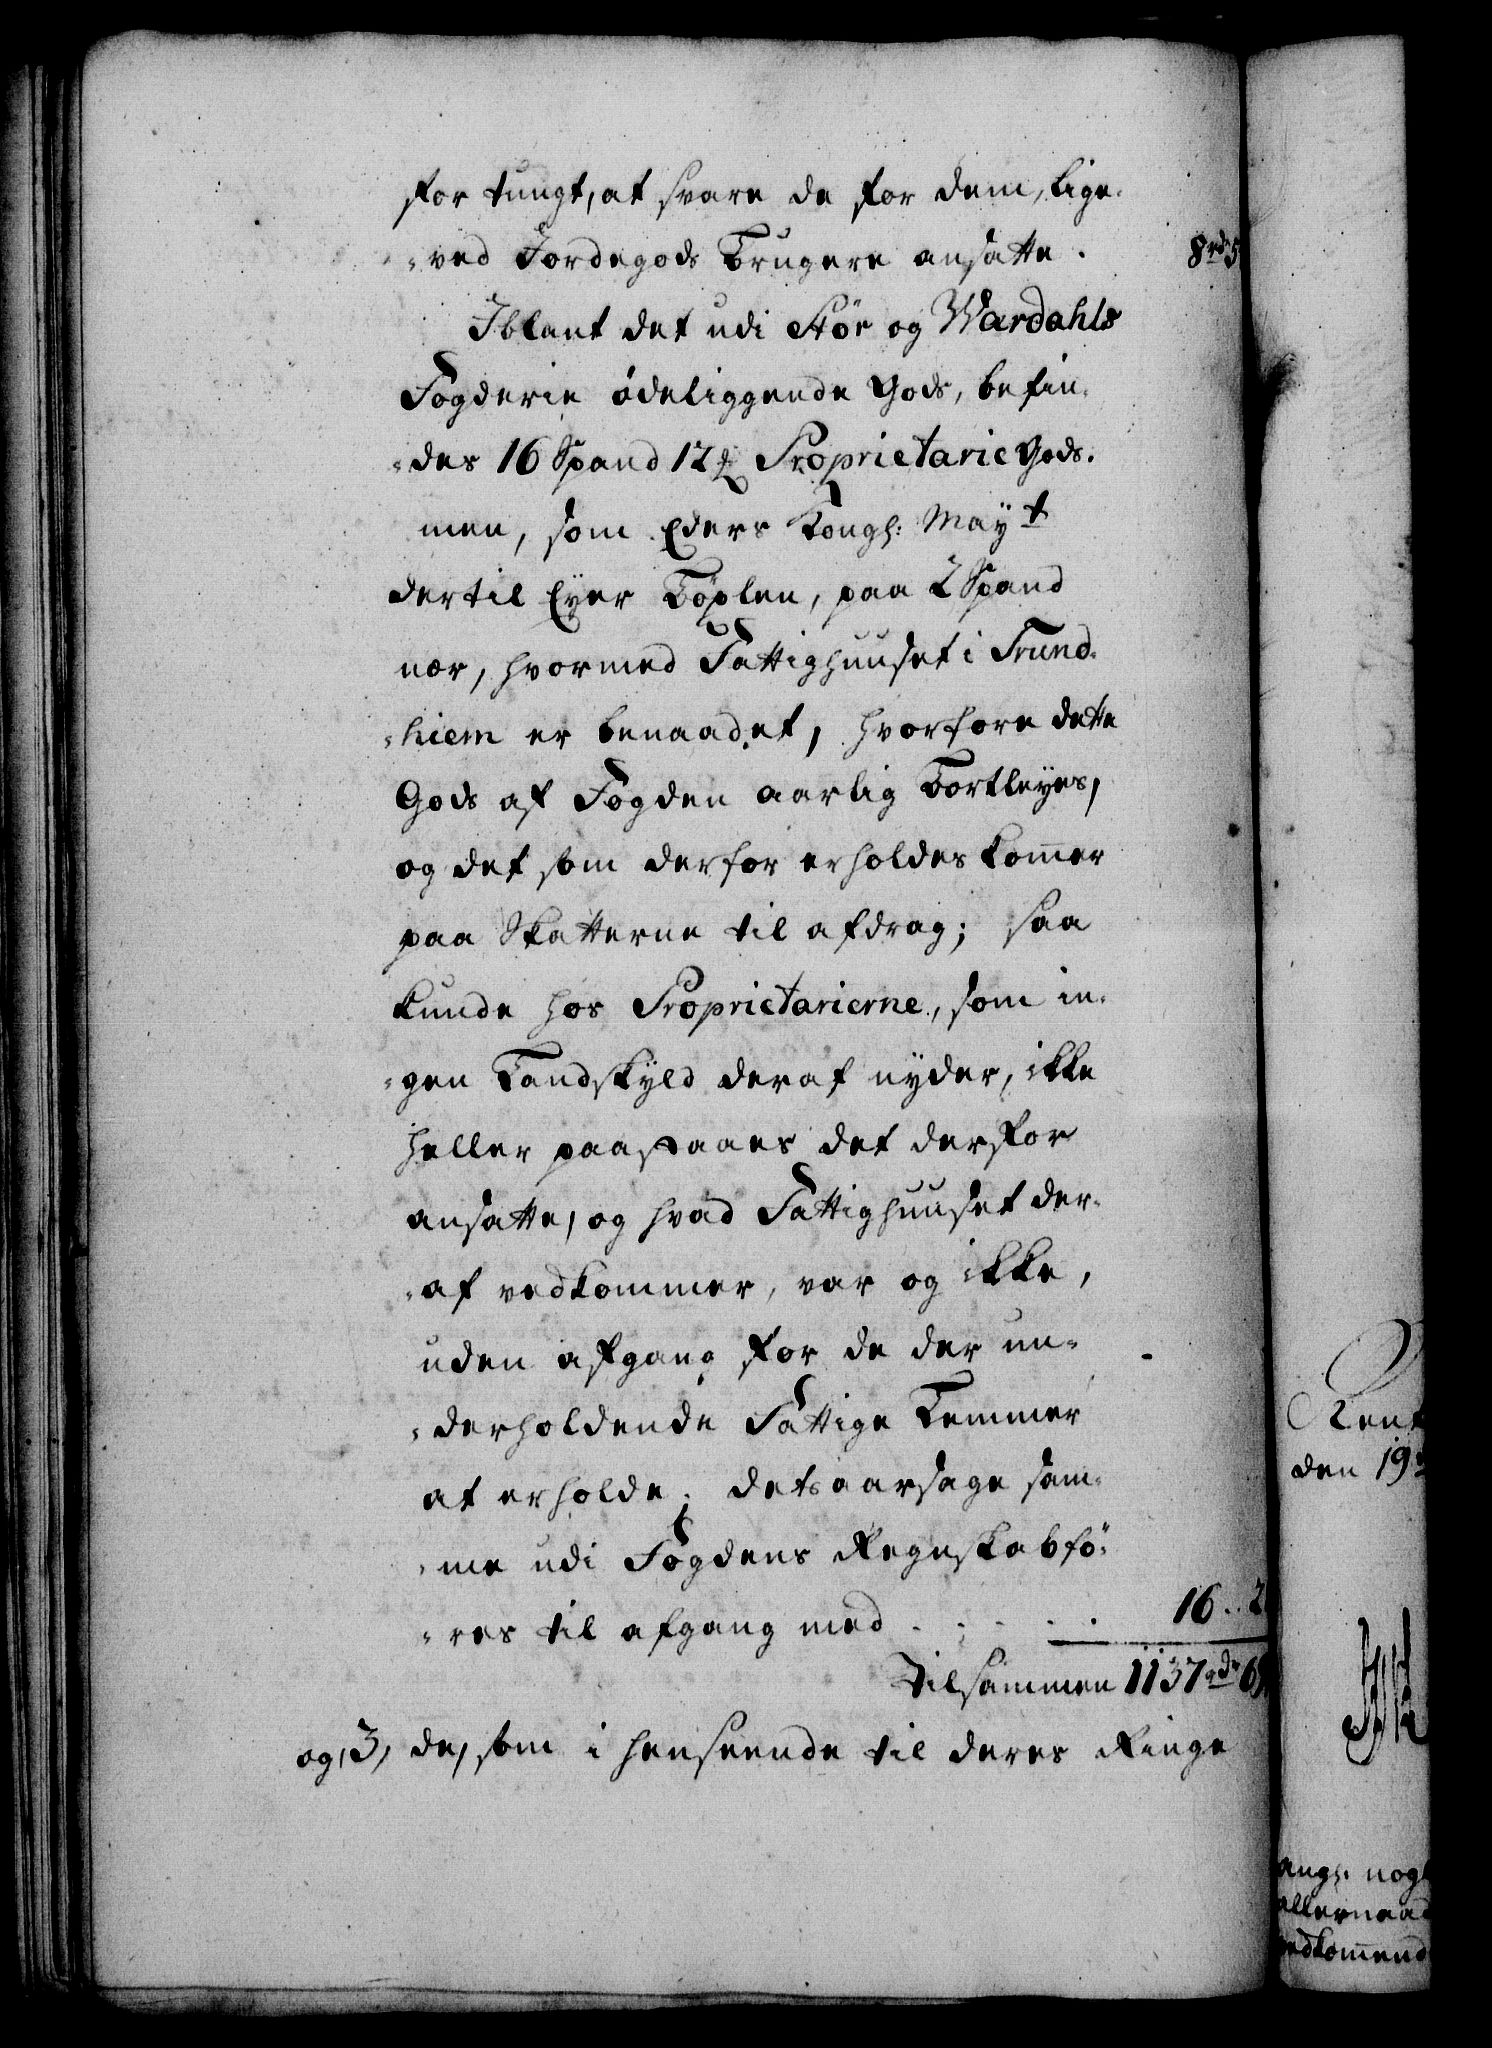 for tungt, at svare de for dem, lige-
-ved Jordegods Brugere ansatte. 8 rd 5
Iblant det udi Stør og Wærdahls
Fogderie ødeliggende Gods, befin-
-des 16 Spand 12 Proprietarie Gods.
men, som Eders Kongl: Mayt
dertil Eyer Bøxlen, paa 2 Spand
nær, hvormed Fattighuuset i Trund-
-hiem er benaadet, hvorfore dette
Gods af Fogden aarlig Bortleyes,
og det som derfor erholdes komer
paa Skatterne til afdrag; saa
kunde hos Proprietarierne, som in-
-gen Landskyld deraf nyder, ikke
heller paastaaes det derfor
ansatte, og hvad Fattighuuset der-
-af vedkommer, var og ikke,
uden afgang for de der un-
-derholdende Fattige Lemmer
at erholde; detsaarsage sam-
-me udi Fogdens Regnskab fø-
-res til afgang med . . . . . 16 .. 2
tilsammen 1137 rd 6
og, 3, de, som i henseende til deres Ringe
den 19
allernaad